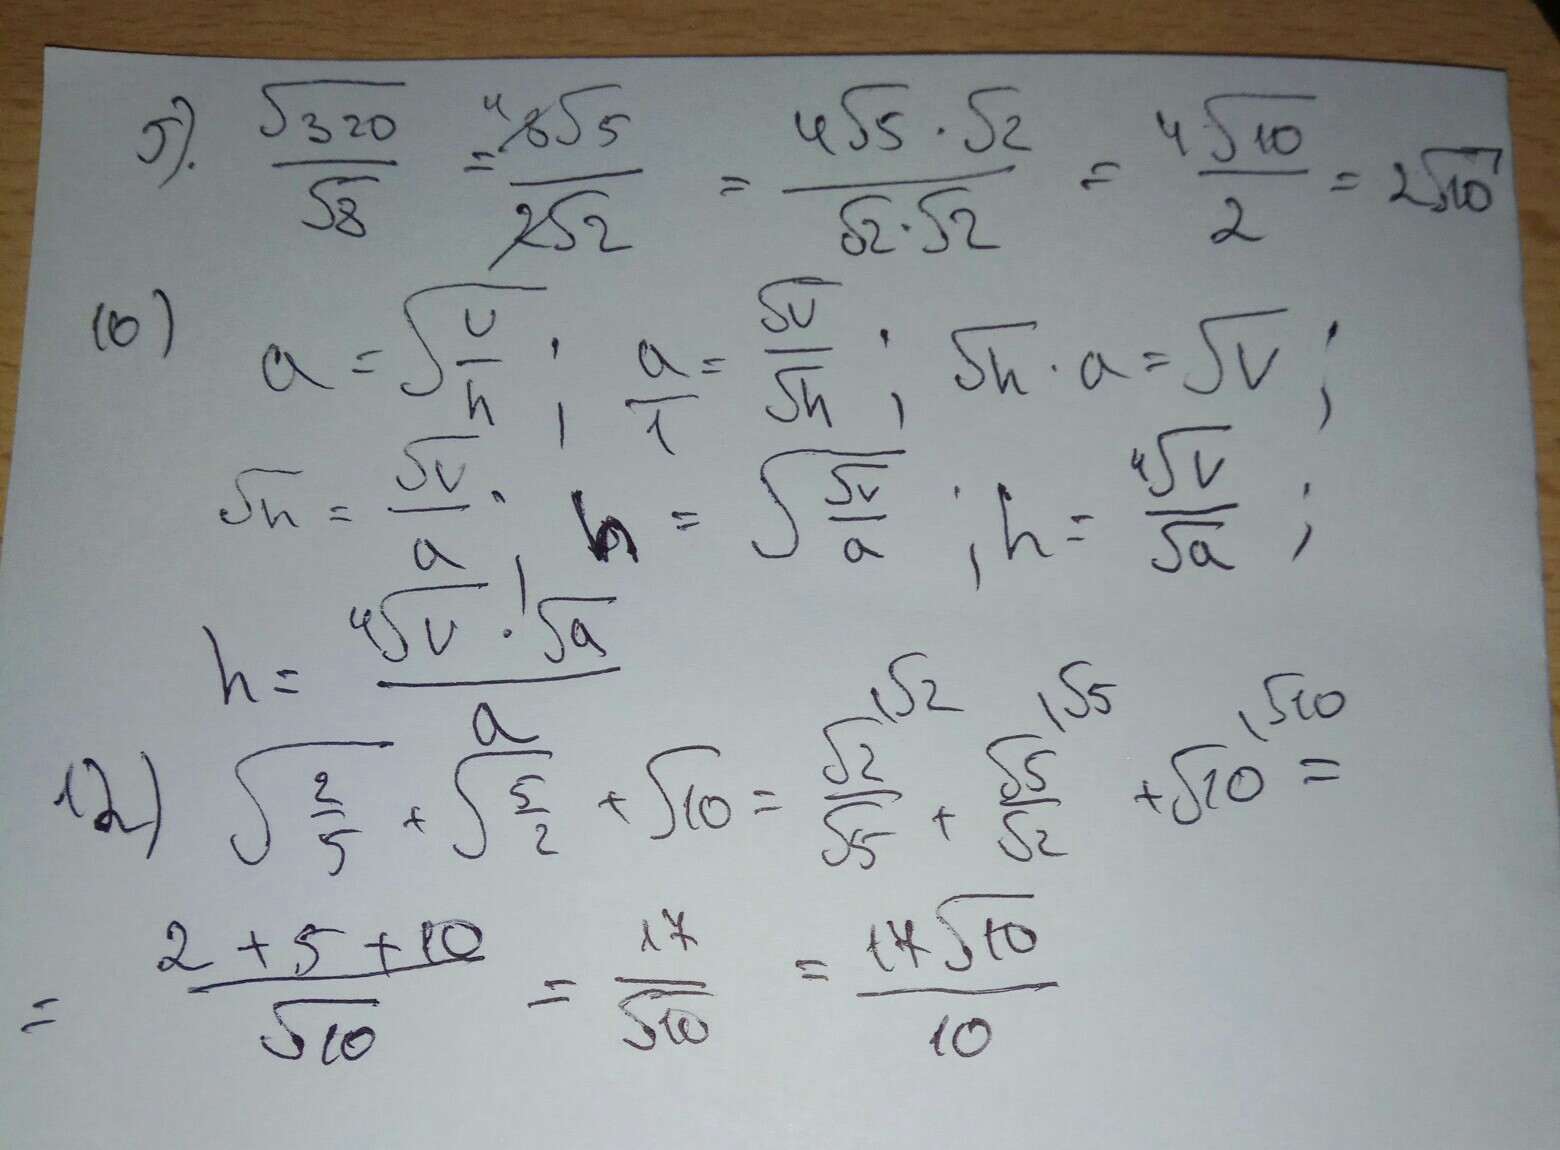 5). √320/√8 = ⁴8√5/2√2 = 4√5·√2/√2·√2 = 4√10/2 = 2√10
10) a = √(v/h) ; a/1 = √v/√h ; √h · a = √v ;
√h = √v/a ; h = √(√v/a) ; h = ⁴√v/√a ;
h = ⁴√v · √a/a
12) √(2/5) + √(5/2) + √10 = √2/√5 ⁽√2 + √5/√2 ⁽√5 + √10 ⁽√10 =
= 2+5+10/√10 = 17/√10 = 17√10/10